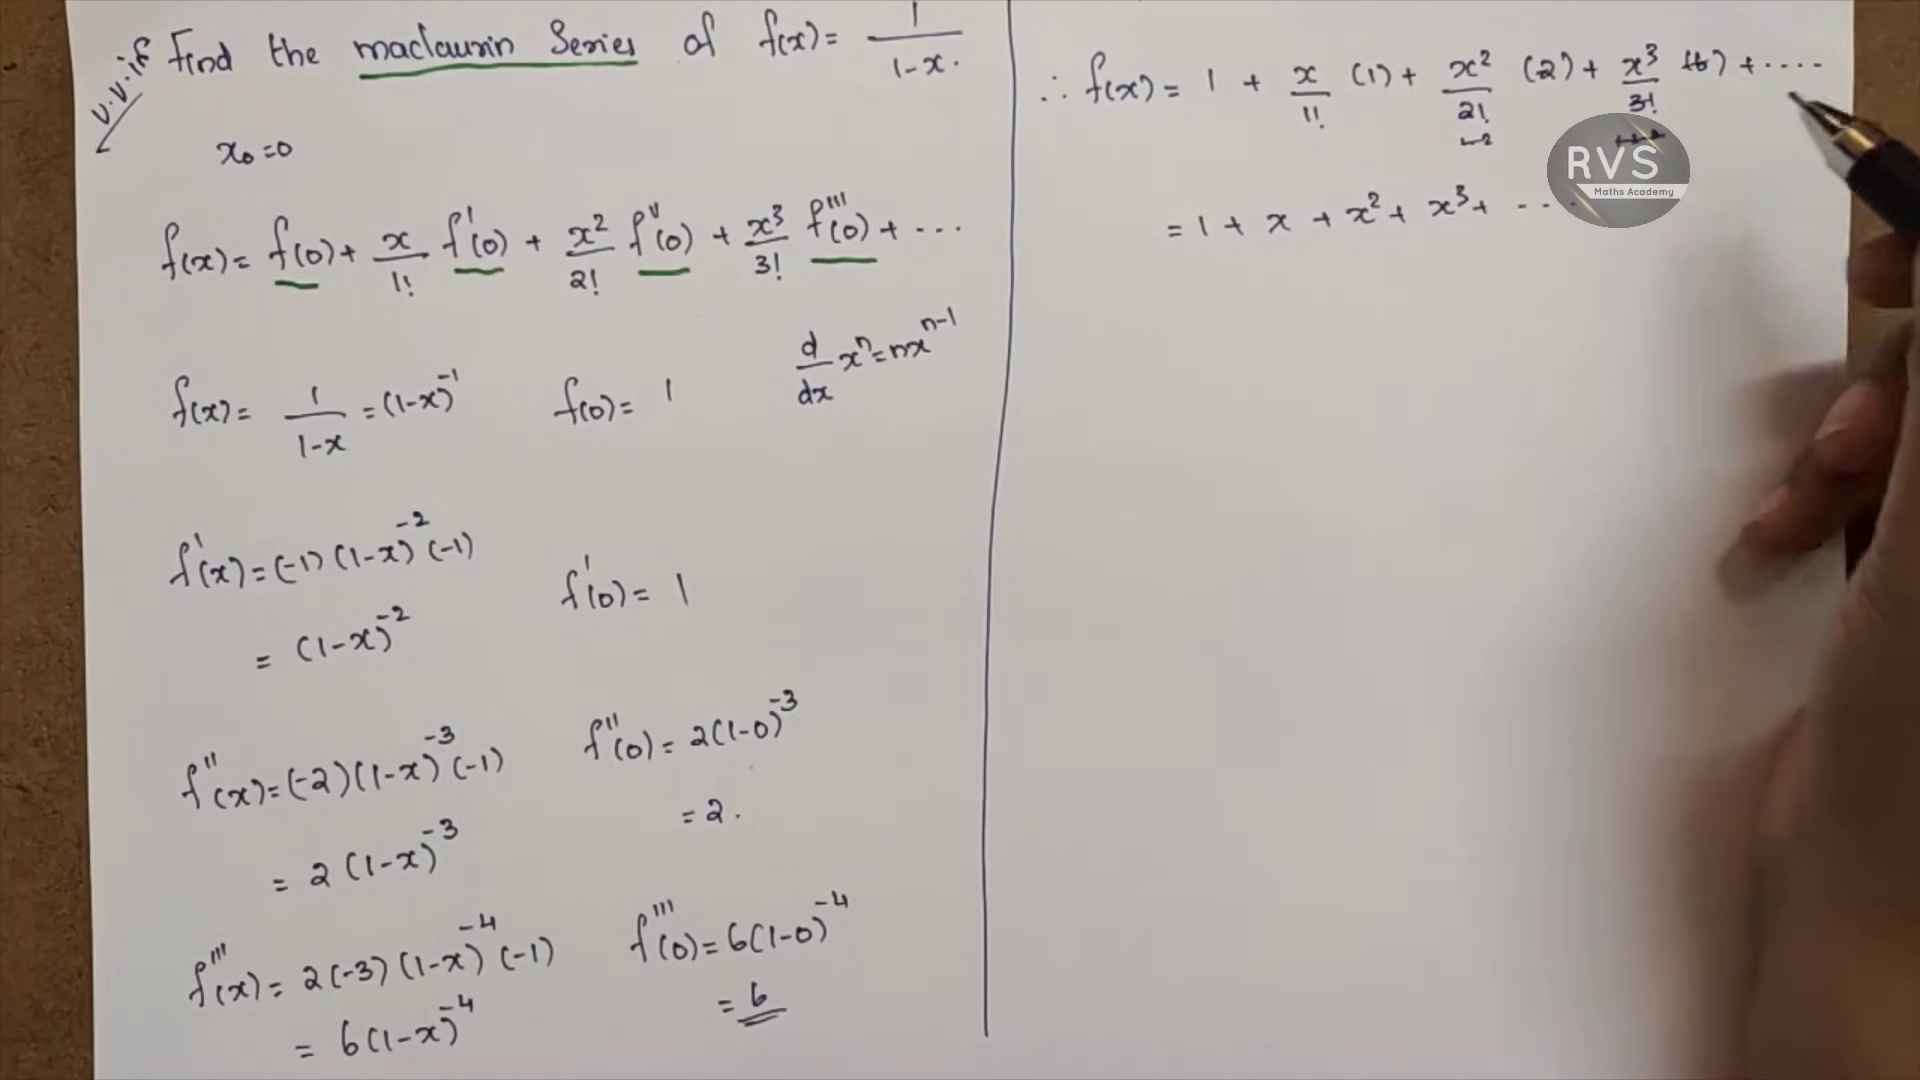 v.v.if Find the maclaurin Series of f(x) = 1/(1-x).
x₀ = 0
f(x) = f(0) + x/1! f'(0) + x²/2! f''(0) + x³/3! f'''(0) + ...
d/dx xⁿ = nxⁿ⁻¹
f(x) = 1/(1-x) = (1-x)⁻¹ f(0) = 1
f'(x) = (-1)(1-x)⁻²(-1) f'(0) = 1
= (1-x)⁻²
f''(x) = (-2)(1-x)⁻³(-1) f''(0) = 2(1-0)⁻³
= 2.
= 2(1-x)⁻³
f'''(x) = 2(-3)(1-x)⁻⁴(-1) f'''(0) = 6(1-0)⁻⁴
= 6
= 6(1-x)⁻⁴
∴ f(x) = 1 + x/1! (1) + x²/2! (2) + x³/3! (6) + ....
= 1 + x + x² + x³ + ....
RVS
Maths Academy